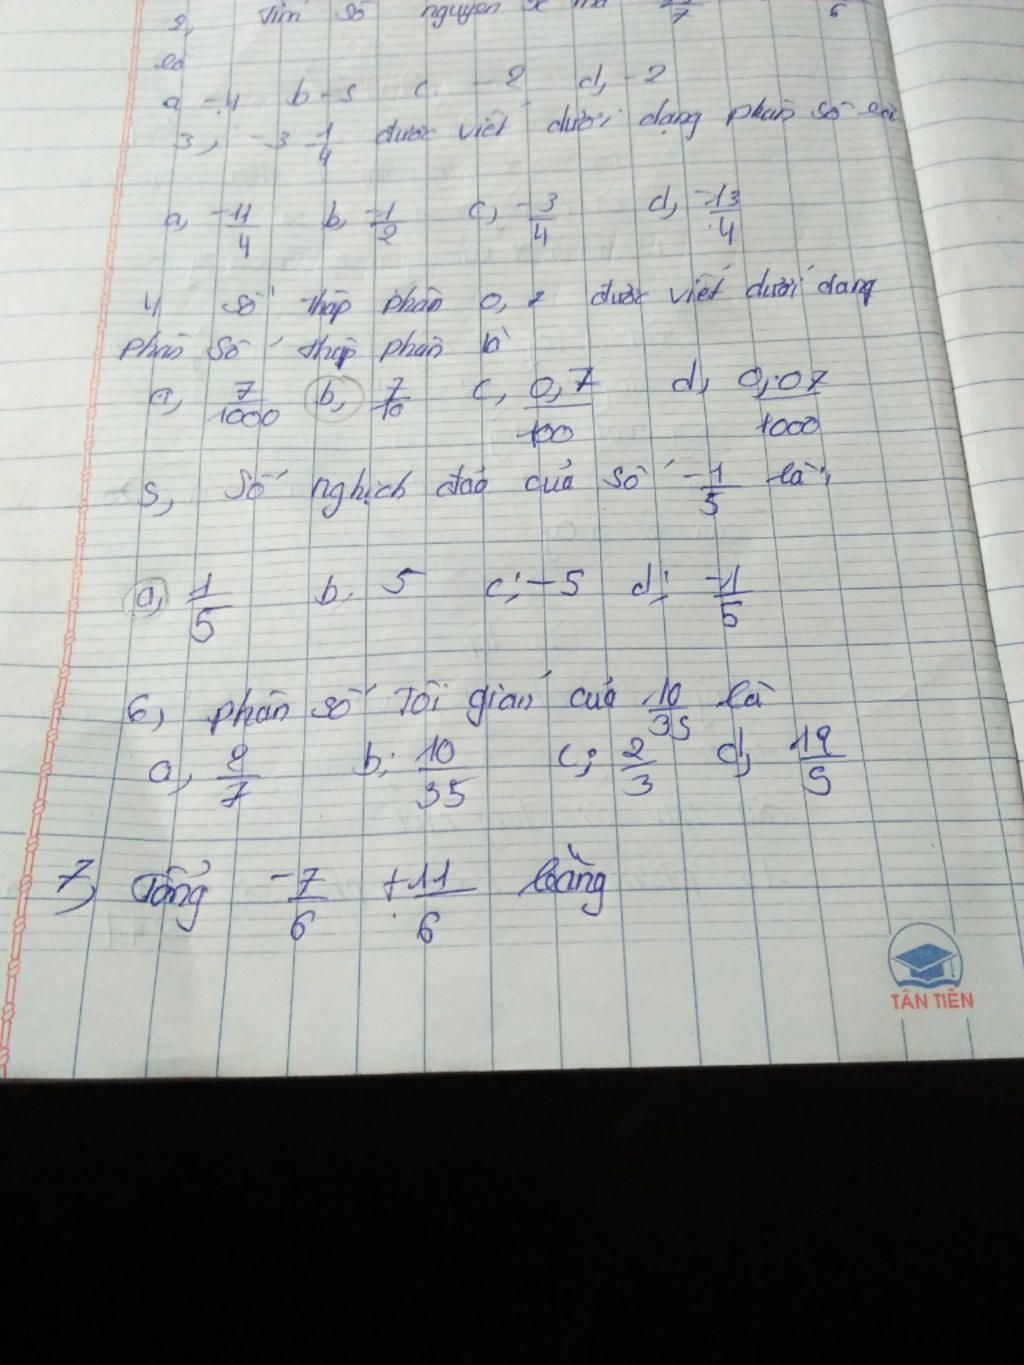 2, Tìm số nguyên x
là
a -4 b -5 c. -2 d, -2
3, -3 1/4 được viết dưới dạng phân số là
a, -11/4 b, -1/2 c, -3/4 d, -13/4
4 Số thập phân 0, được viết dưới dạng
phân số thập phân là
a, 7/1000 b, 7/10 c, 0,7/100 d, 0,07/1000
5, Số nghịch đảo của số -1/5 là,
a, 1/5 b, 5 c; -5 d; -1/5
6, phân số Tối giản của 10/35 là
a, 2/7 b; 10/35 c; 2/3 d,
7, Tổng -7/6 + 11/6 bằng
TÂN TIẾN